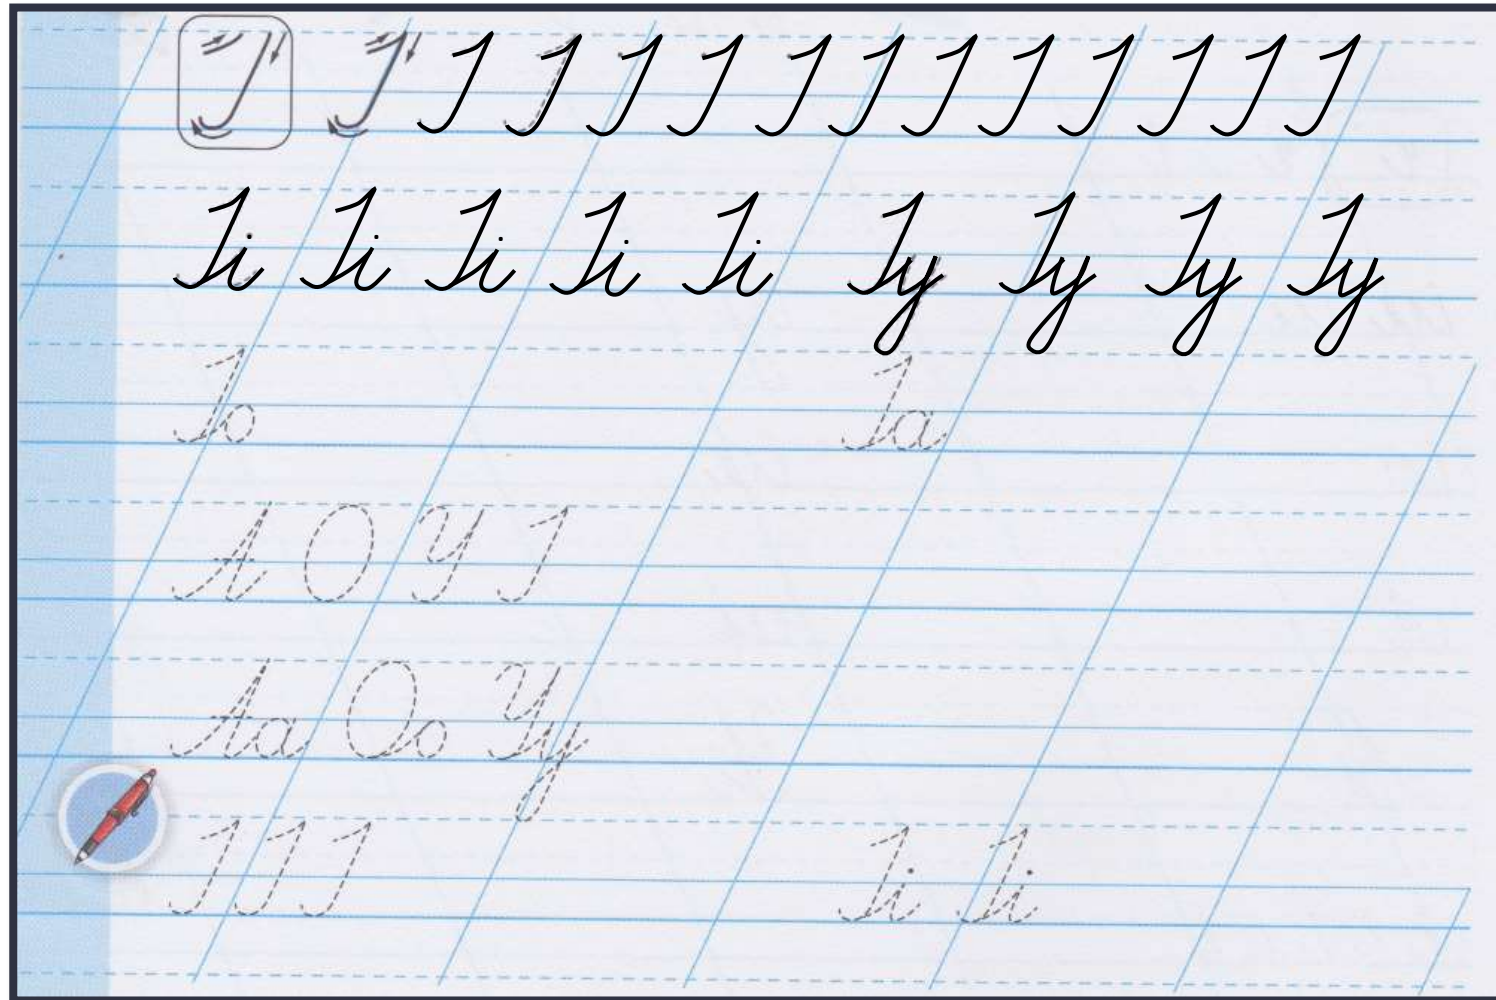 І І І І І І І І І І І І І І
Іі Іі Іі Іі Іі Іу Іу Іу Іу
Іо Іа
А О У І
Аа Оо Уу
І І І Іі Іі